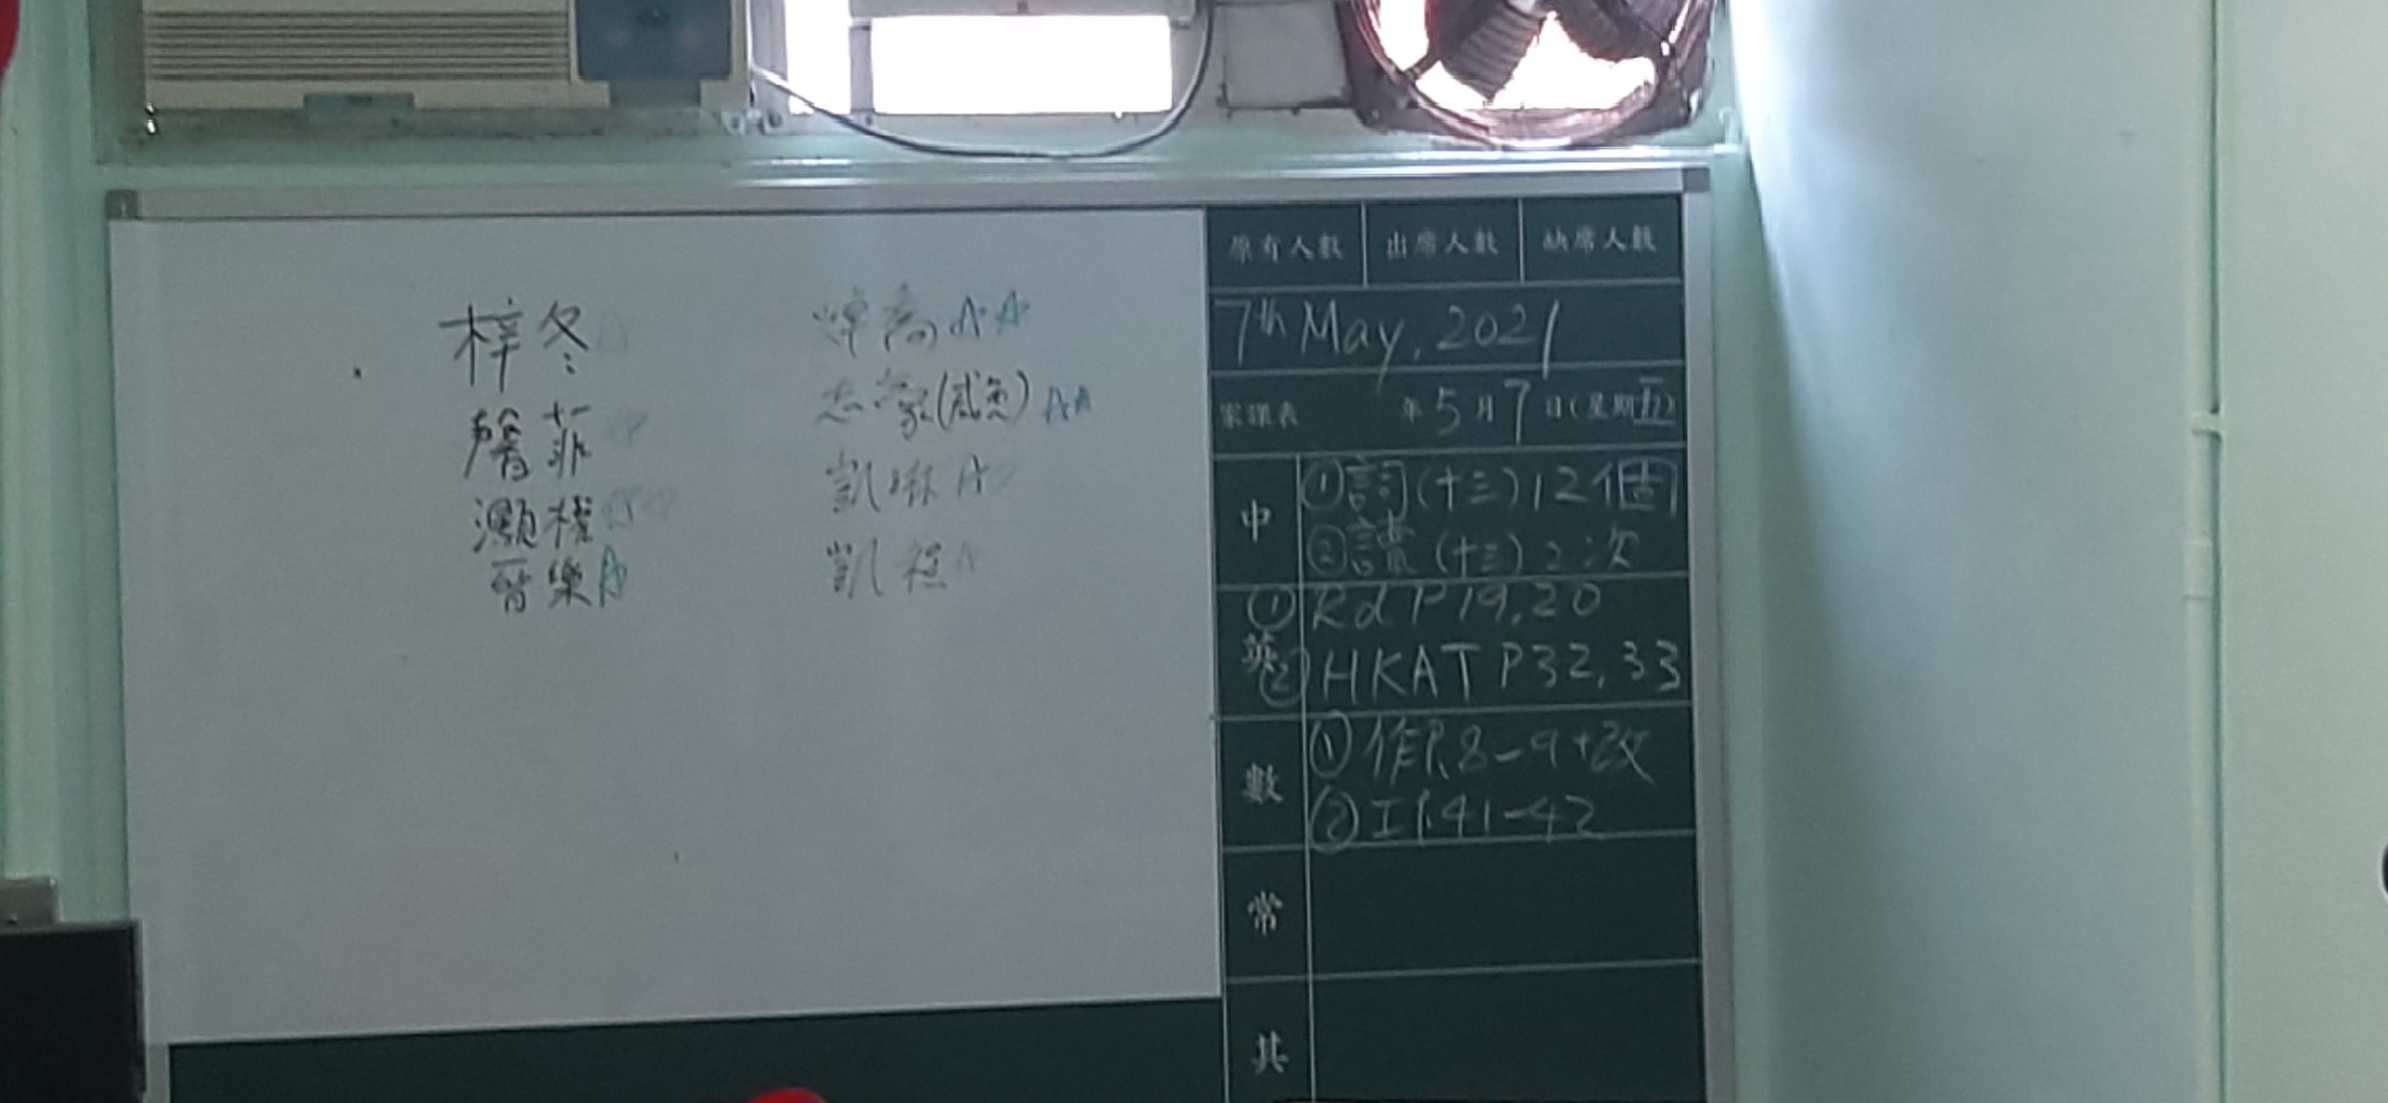 梓冬
馨菲
灝樑
晉樂 A
焯喬 A A
志豪(感愈) A A
凱琳 A
凱稔 A
原有人數 出席人數 缺席人數
7th May, 2021
家課表 年5月7日(星期五)
中 ①詞(十三)12個
②讀(十三)2次
英 ①Rd P19,20
②HKAT P32,33
數 ①作P.8-9+改
②工P.41-42
常
其